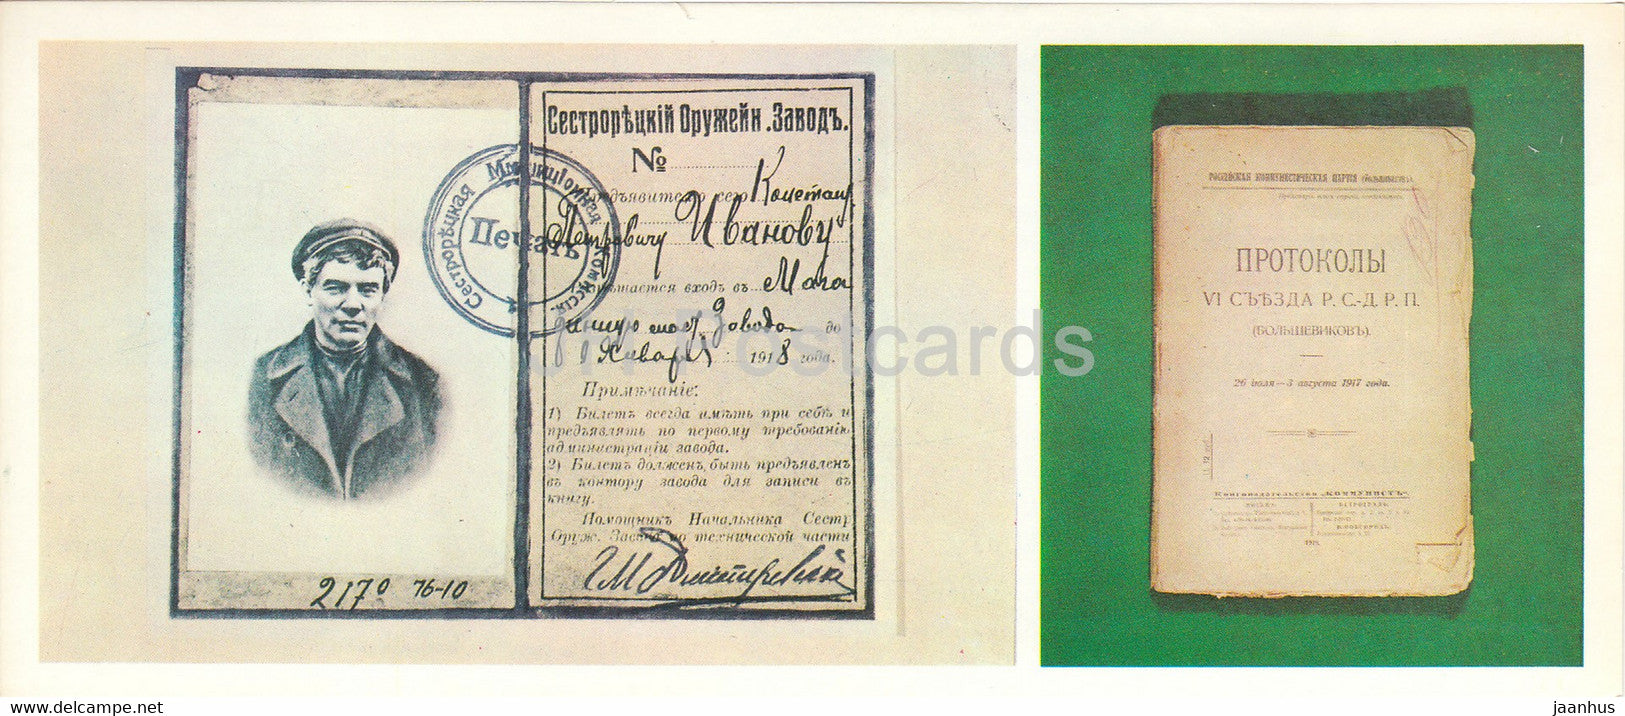 Сестрорѣцкій Оружейн. Заводъ.
№
Предъявителю сего Констан
Петровичу Иванову
разрѣшается входъ въ Мага
зинную маст. Завода до
1 Января 1918 года.
Примѣчаніе:
1) Билетъ всегда имѣть при себѣ и
предъявлять по первому требованію
администраціи завода.
2) Билетъ долженъ быть предъявленъ
въ контору завода для записи въ
книгу.
Помощникъ Начальника Сестр
Оруж. Завода по технической части
Сестрорѣцкая Милиціонная Комиссія
Печать
2170 76-10
РОССІЙСКАЯ КОММУНИСТИЧЕСКАЯ ПАРТІЯ (большевиковъ).
Пролетаріи всѣхъ странъ, соединяйтесь!
ПРОТОКОЛЫ
VI СЪѢЗДА Р. С.-Д. Р. П.
(БОЛЬШЕВИКОВЪ).
26 іюля—3 августа 1917 года.
Книгоиздательство „КОММУНИСТЪ“.
МОСКВА. ПЕТРОГРАДЪ.
1919.
Postcards
oldthing.net
jaanhus